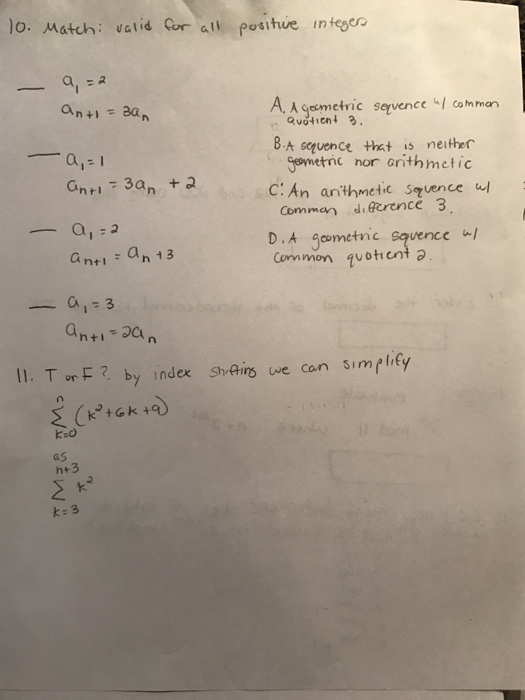 10. Match: valid for all positive integers
— a₁ = 2
aₙ₊₁ = 3aₙ
— a₁ = 1
aₙ₊₁ = 3aₙ + 2
— a₁ = 2
aₙ₊₁ = aₙ + 3
— a₁ = 3
aₙ₊₁ = 2aₙ
A. A geometric sequence w/ common
quotient 3.
B. A sequence that is neither
geometric nor arithmetic
C. An arithmetic squence w/
common difference 3.
D. A geometric squence w/
common quotient 2.
11. T or F? by index shifting we can simplify
n
Σ (k² + 6k + 9)
k=0
as
n+3
Σ k²
k=3